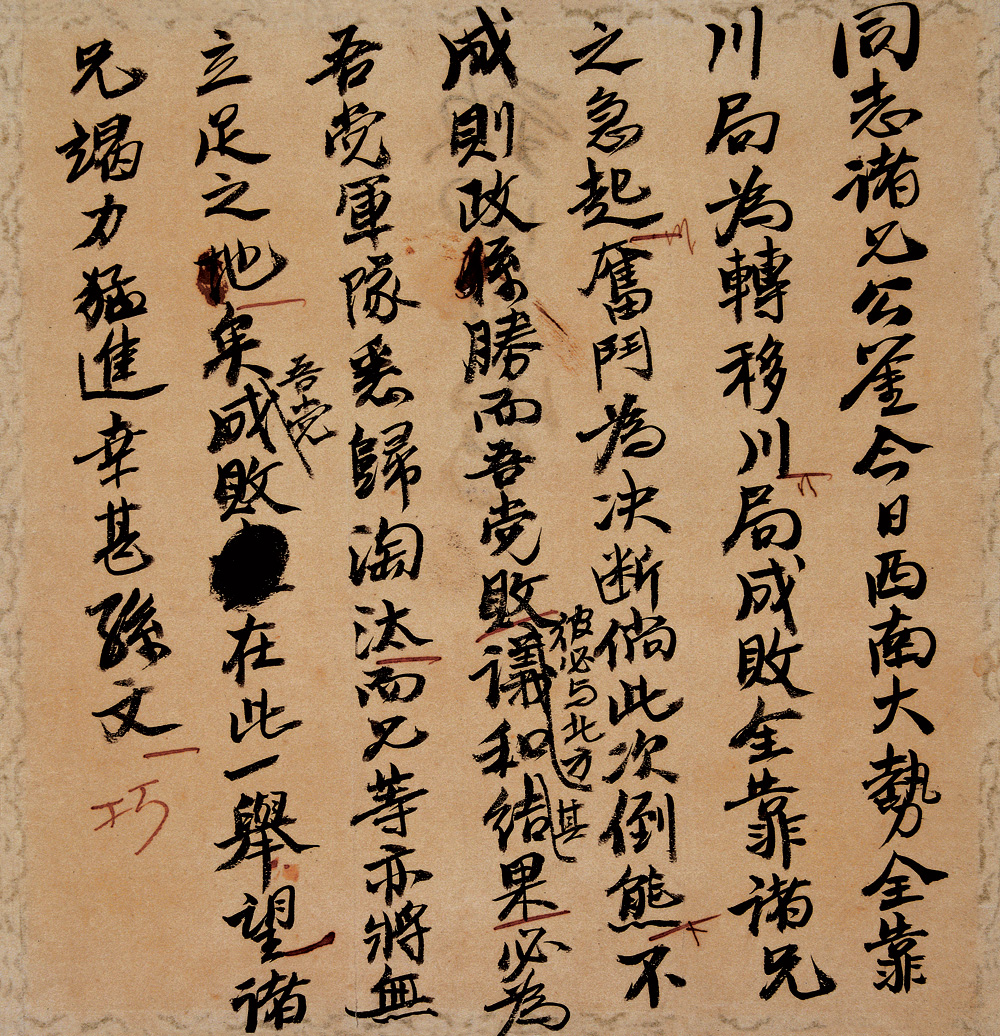 同志諸兄公鉴今日西南大勢全靠
川局為轉移川局成敗全靠諸兄
之急起奮鬥為決断倘此次倒熊不
成則政系勝而吾党敗彼必与北方議和其结果必為
吾党軍隊悉歸淘汰而兄等亦將無
立足之地矣吾党成敗在此一舉望諸
兄竭力猛進幸甚孫文
巧